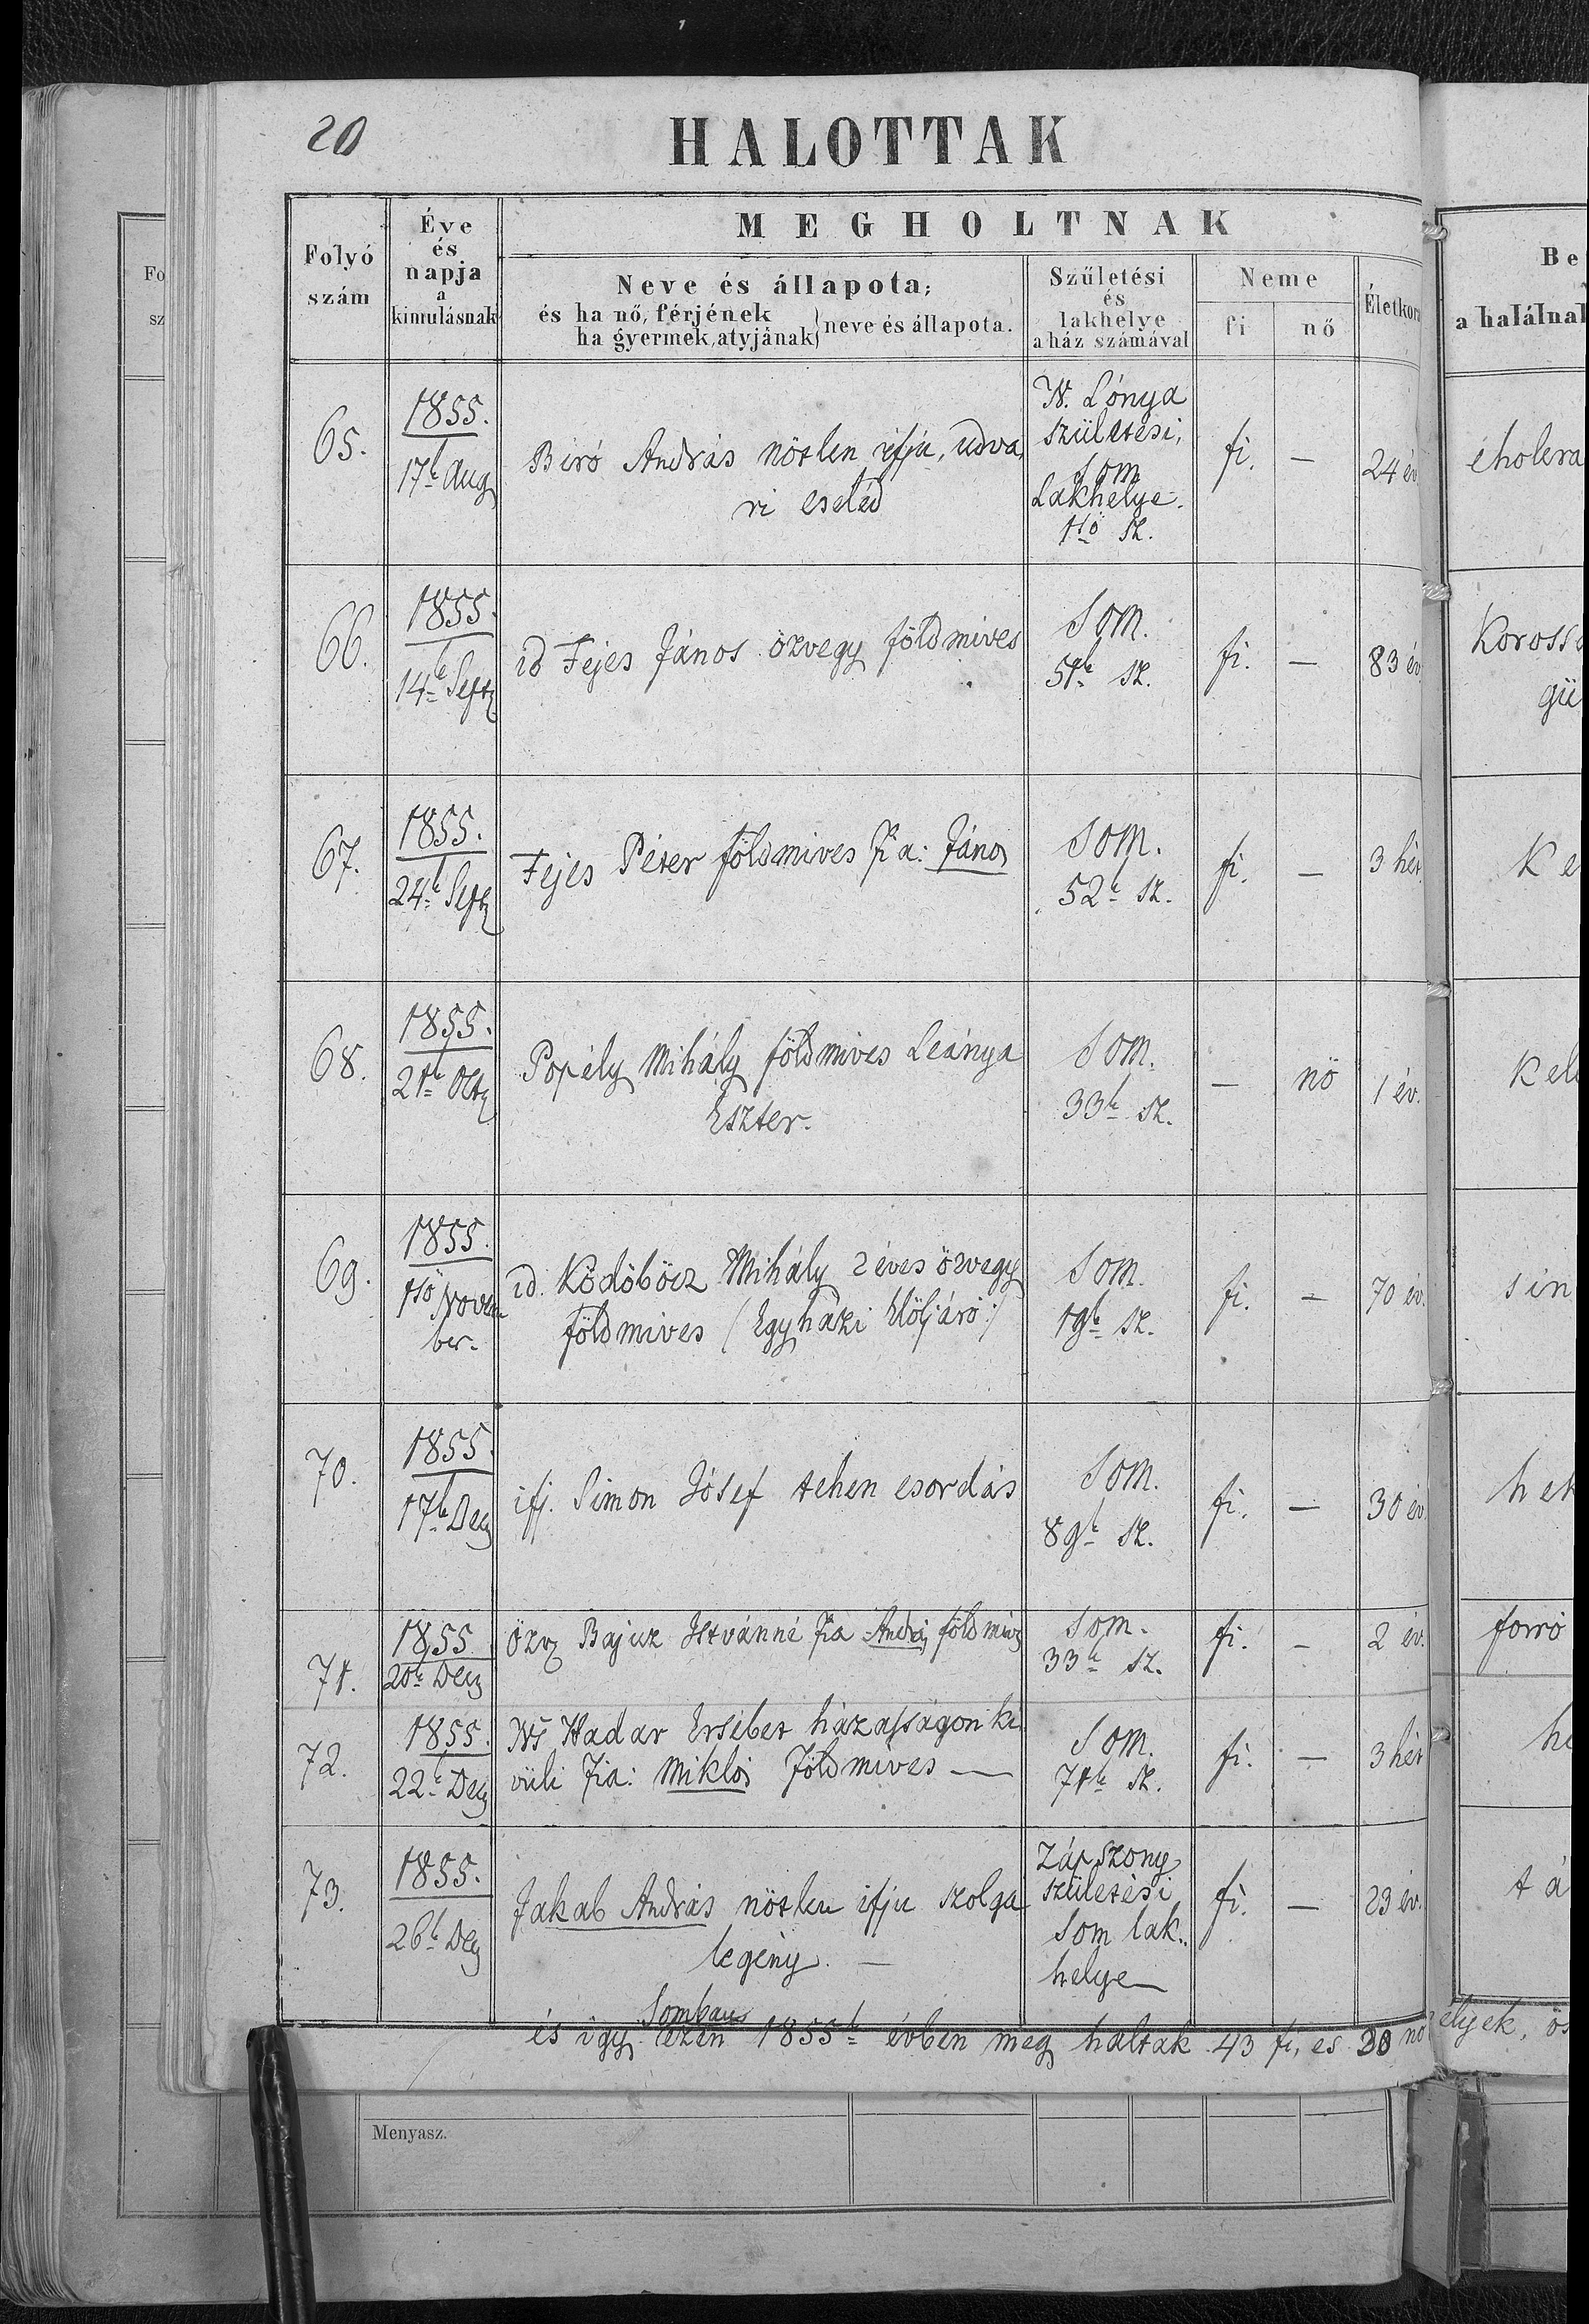 20
HALOTTAK
Folyó
szám
Éve
és
napja
a
kimulásnak
MEGHOLTNAK
Neve és állapota;
és ha nő, férjének
ha gyermek, atyjának } neve és állapota.
Születési
és
lakhelye
a ház számával
Neme
fi
nő
Életkora
Be
a halálnak
65.
1855.
17k Aug
Biró András nőtlen ifju, udva,
ri cseléd
N. Lónya
születési,
Som
Lakhelye.
1ső sz.
fi.
—
24 év
cholera
66.
1855.
14k Septz
id Fejes János özvegy földmives
Som.
51k sz.
fi.
—
83 év.
Koross
gü
67.
1855.
24k Septz
Fejes Péter földmives fia: János
Som.
52k sz.
fi.
—
3 hét.
Ke
68.
1855.
21k Octz
Popély Mihály földmives Leánya
Eszter.
Som.
33k sz.
—
nö
1 év.
Kel
69.
1855.
1ső Novem
ber.
id. Ködöböcz Mihály 2 éves özvegy
földmives (Egyházi Elöljáró:)
Som.
19k sz.
fi.
—
70 év.
sin
70.
1855.
17k Decz
ifj. Simon Jósef tehen csordás
Som.
89k sz.
fi.
—
30 év.
hek
71.
1855
20k Decz
Özv Bajusz Istvánné fia András földmives
Som.
33k sz.
fi.
—
2 év.
forró
72.
1855.
22k Decz
Ns Hadar Ersébet házasságon ki
vüli Fia: Miklós Földmives —
Som.
71k sz.
fi.
—
3 hét
he
73.
1855.
26k Decz
Jakab András nőtlen ifju szolga
legény. —
Zápszony
születési
Som lak.
helye
fi.
—
23 év.
tá
Somban
és igy ezen 1855k évben meg haltak 43 fi, es 30 nö
élyek, ös
Fo
sz
Menyasz.